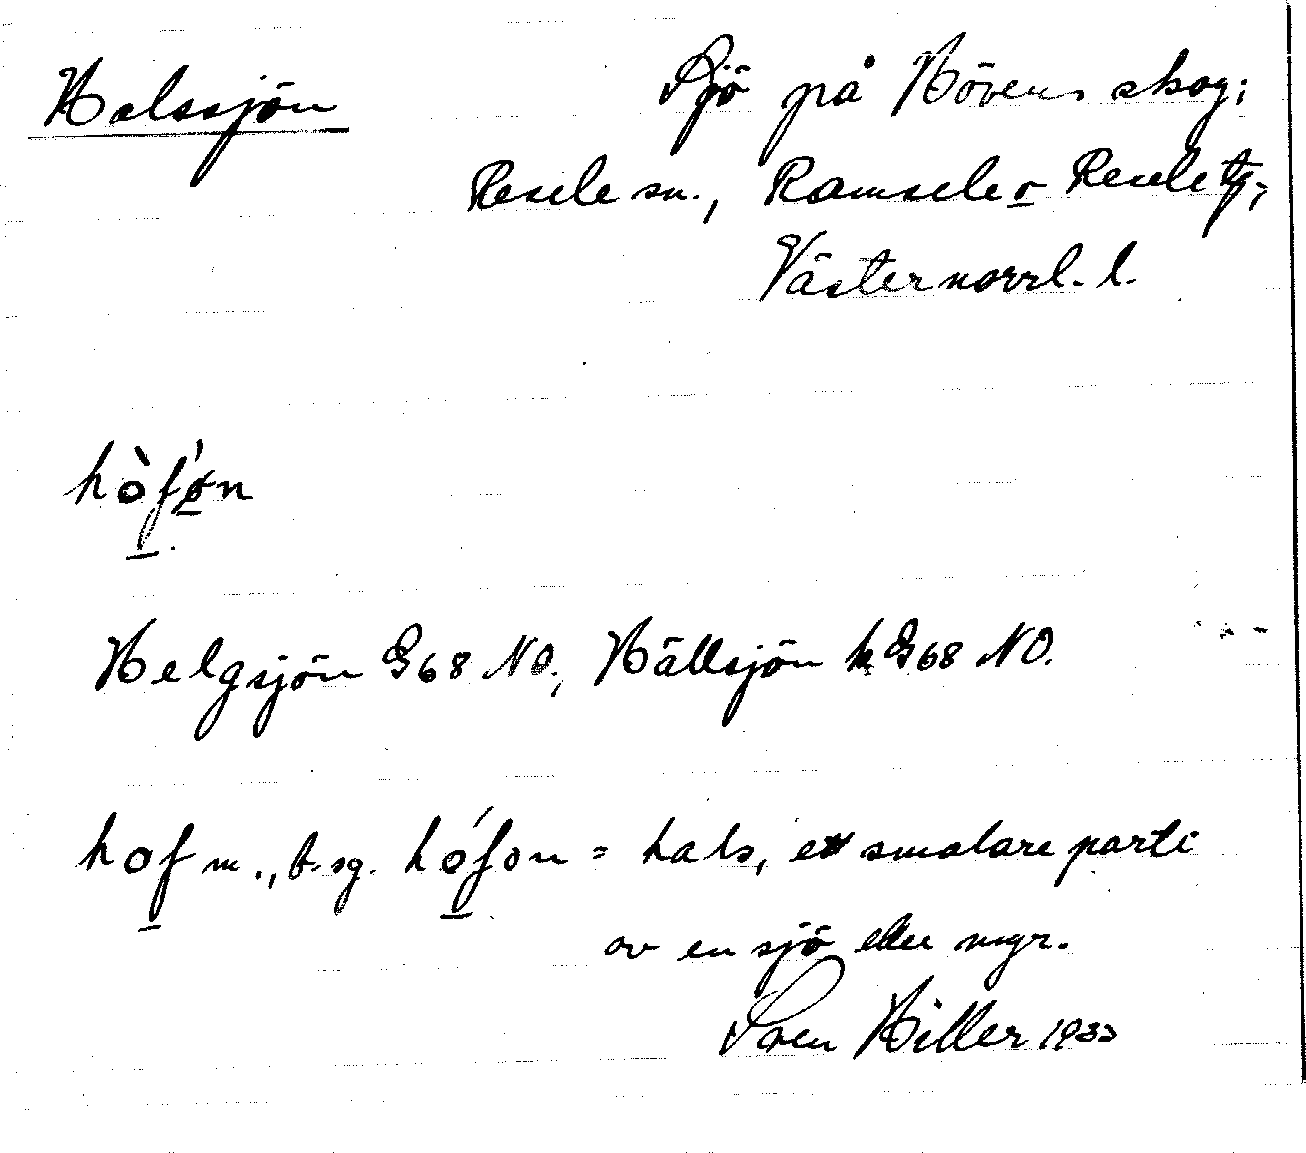 Halssjön
Sjö på Hövens skog;
Resele sn., Ramsele o Resele tg,
Västernorrl. l.
hòføn
Helgsjön G68 NO., Hällsjön k G68 NO.
hof m., b. sg. hófon = hals, ett smalare parti
av en sjö eller myr.
Sven Hiller 1933